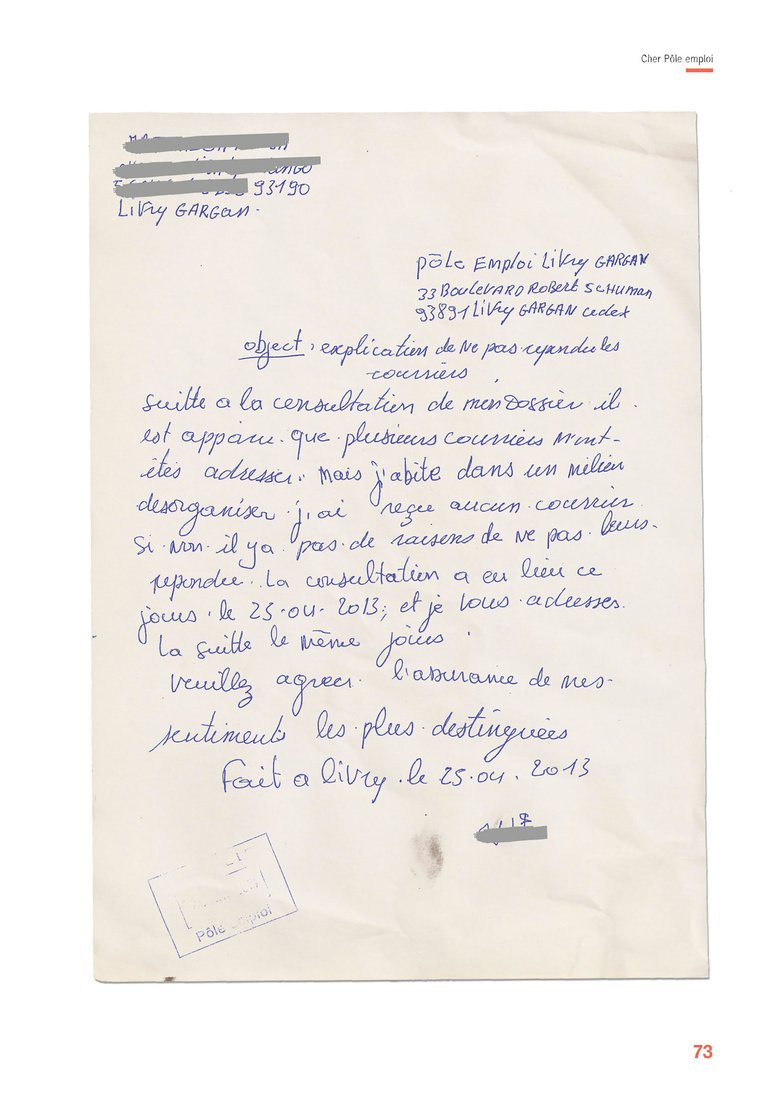 Cher Pôle emploi
93190
Livry GARGan.
pôle Emploi Livry GARGAN
33 Boulevard Robert Schuman
93891 Livry GARGAN cedex
object : explication de ne pas rependu les
courriers
suitte a la consultation de mon Dossier il
est apparu que plusieurs courriers m'ont
étés adresser. Mais j'abite dans un milieu
desorganiser j'ai reçue aucun courrier
Si non il ya pas de raisons de ne pas leurs
rependre. La consultation a eu lieu ce
jours le 25.04.2013; et je vous adresses
la suitte le même jours.
veuillez agreer l'assurance de mes
sentiments les plus destinguées
Fait a livry le 25.04.2013
Pôle emploi
73